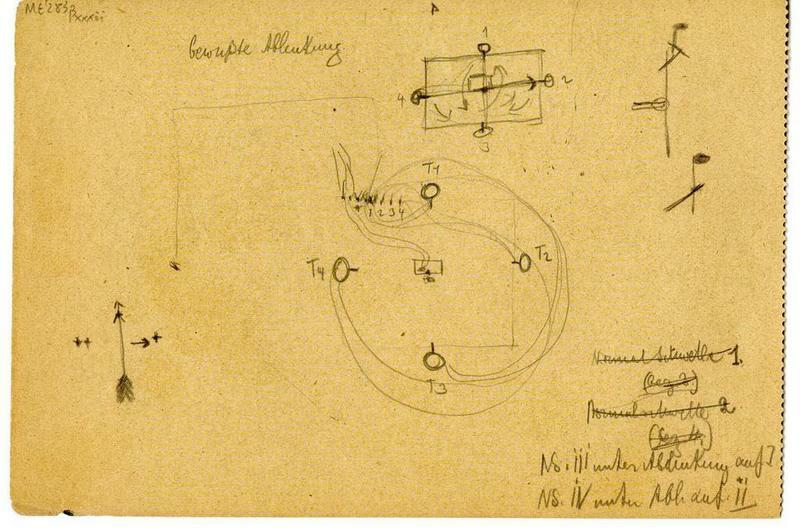 ME 283
bewußte Ablenkung
1
4 2
3
T1
1 2 3 4
T4 T2
T3
Normalschwelle 1.
Normalschwelle 2
NS. III unter Ablenkung auf I
NS. IV unter Abl. auf II